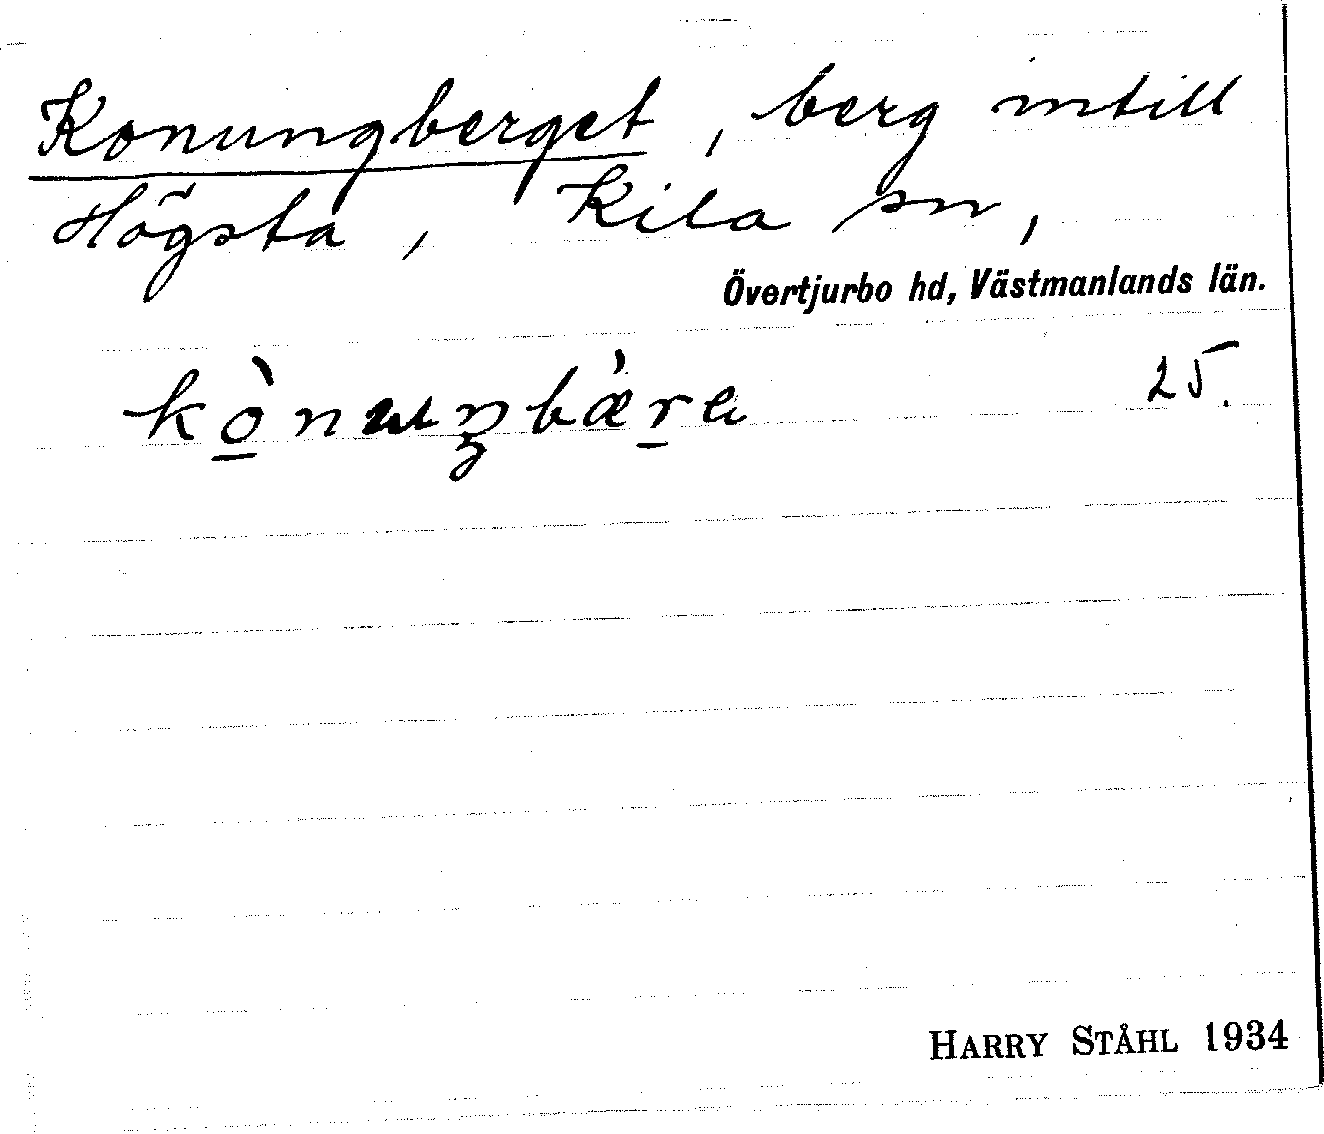 Konungberget, berg intill
Högsta, Kila sn,
Övertjurbo hd, Västmanlands län.
kò̠nuŋbæ̀r̠e 25.
HARRY STÅHL 1934